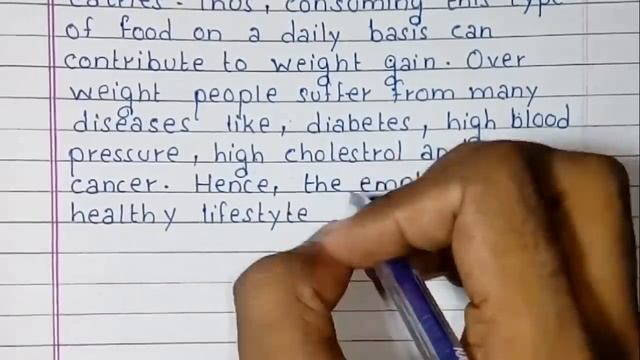 Thus, consuming this type
of food on a daily basis can
contribute to weight gain. Over
weight people suffer from many
diseases like, diabetes, high blood
pressure, high cholestrol
cancer. Hence, the
healthy lifestyte